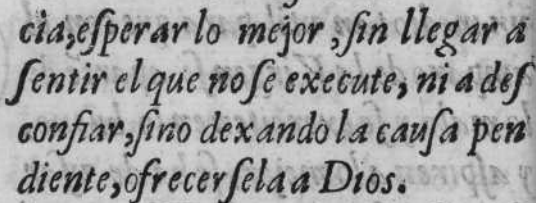 cia,eſperar lo mejor,ſin llegar a
ſentir el que no ſe execute, ni a deſ
confiar,ſino dexando la cauſa pen
diente,ofrecerſela a Dios.